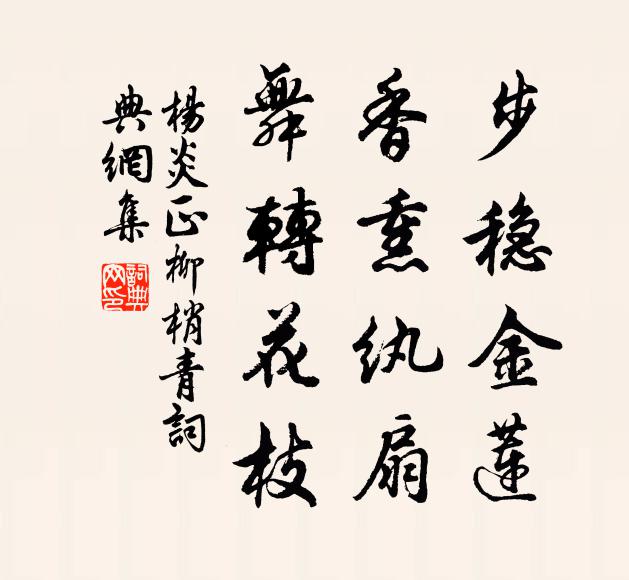 步稳金蓮
香熏纨扇
舞轉花枝
楊炎正柳梢青詞
典網集
詞典網印